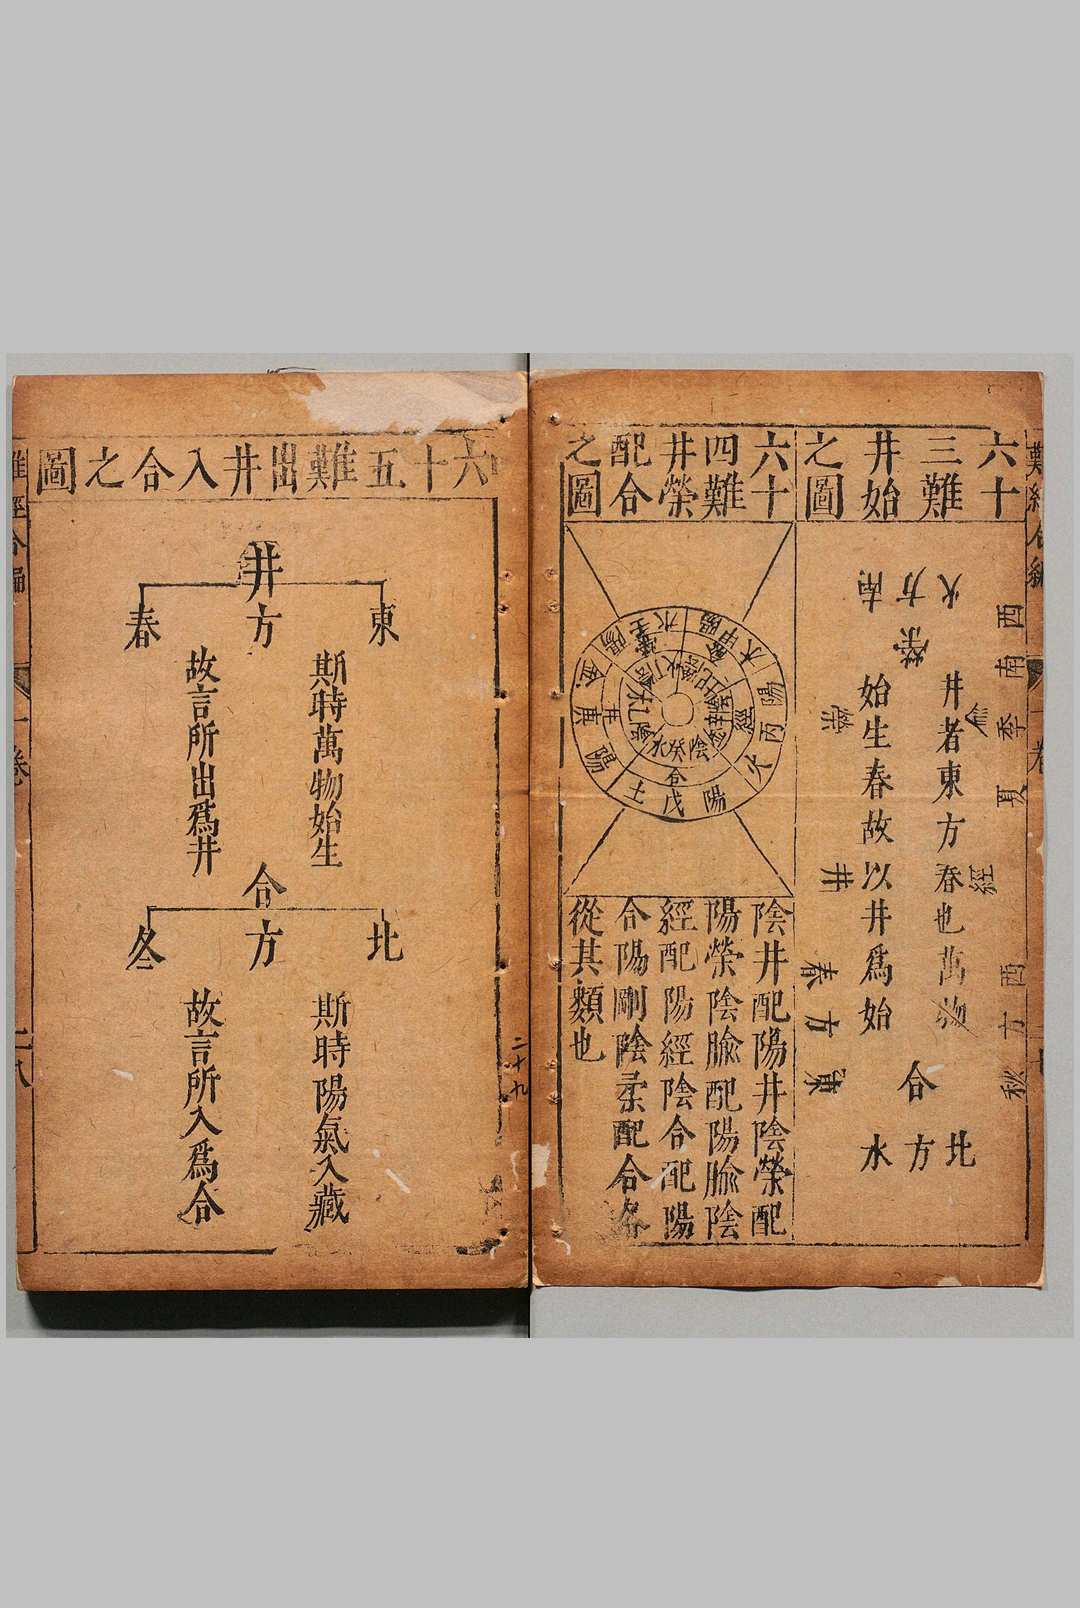 六十
三難
井始
之圖
南方火
榮
西南季夏
井者東方春也萬物
始生春故以井爲始
榮
井
經
東方春
西方秋
合
北方水
六十
四難
井榮
配合
之圖
陽甲木
陽丙火
陽戊土
陽庚金
陽壬水
經
合
井
陰癸水
陰井配陽井陰榮配
陽榮陰腧配陽腧陰
經配陽經陰合配陽
合陽剛陰柔配合各
從其類也
二十九
六十五難出井入合之圖
井
東方春
斯時萬物始生
故言所出爲井
合
北方冬
斯時陽氣入藏
故言所入爲合